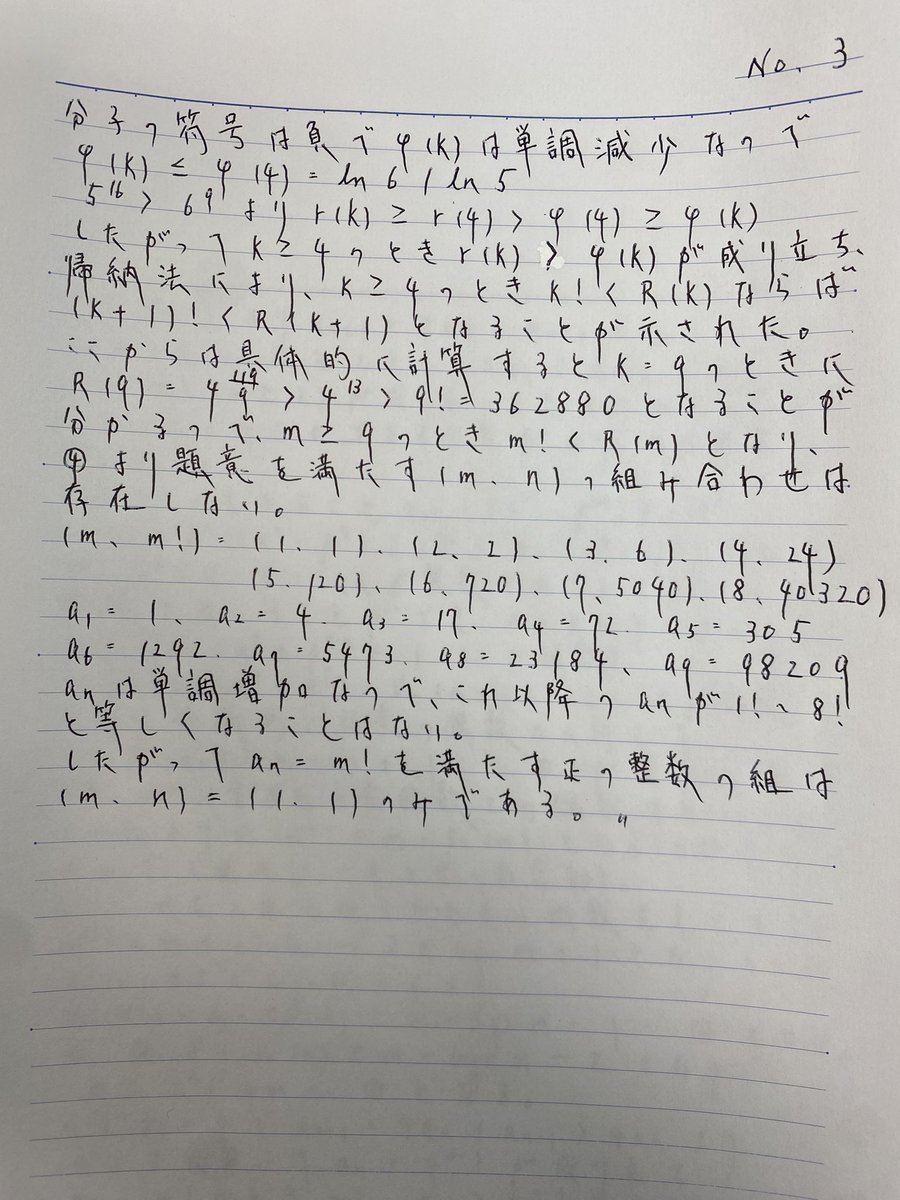 No. 3
分子の符号は負でφ(k)は単調減少なので
φ(k) ≤ φ(4) = ln 6 / ln 5
5^16 > 6^9 より r(k) ≥ r(4) > φ(4) ≥ φ(k)
したがって k ≥ 4 のとき r(k) > φ(k) が成り立ち、
帰納法により、k ≥ 4 のとき k! < R(k) ならば
(k+1)! < R(k+1) となることが示された。
ここからは具体的に計算すると k = 9 のときに
R(9) = 4^(119/9) > 4^13 > 9! = 362880 となることが
分かるので、m ≥ 9 のとき m! < R(m) となり、
④より題意を満たす(m、n)の組み合わせは
存在しない。
(m、m!) = (1、1)、(2、2)、(3、6)、(4、24)
(5、120)、(6、720)、(7、5040)、(8、40320)
a1 = 1、a2 = 4、a3 = 17、a4 = 72、a5 = 305
a6 = 1292、a7 = 5473、a8 = 23184、a9 = 98209
anは単調増加なので、これ以降のanが1!~8!
と等しくなることはない。
したがって an = m! を満たす正の整数の組は
(m、n) = (1、1)のみである。〃